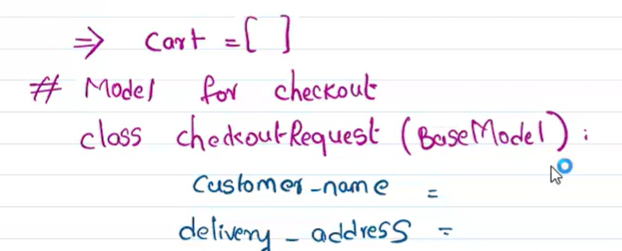 ⇒ Cart = [ ]
# Model for checkout
class checkoutRequest (BaseModel) :
Customer_name =
delivery_address =